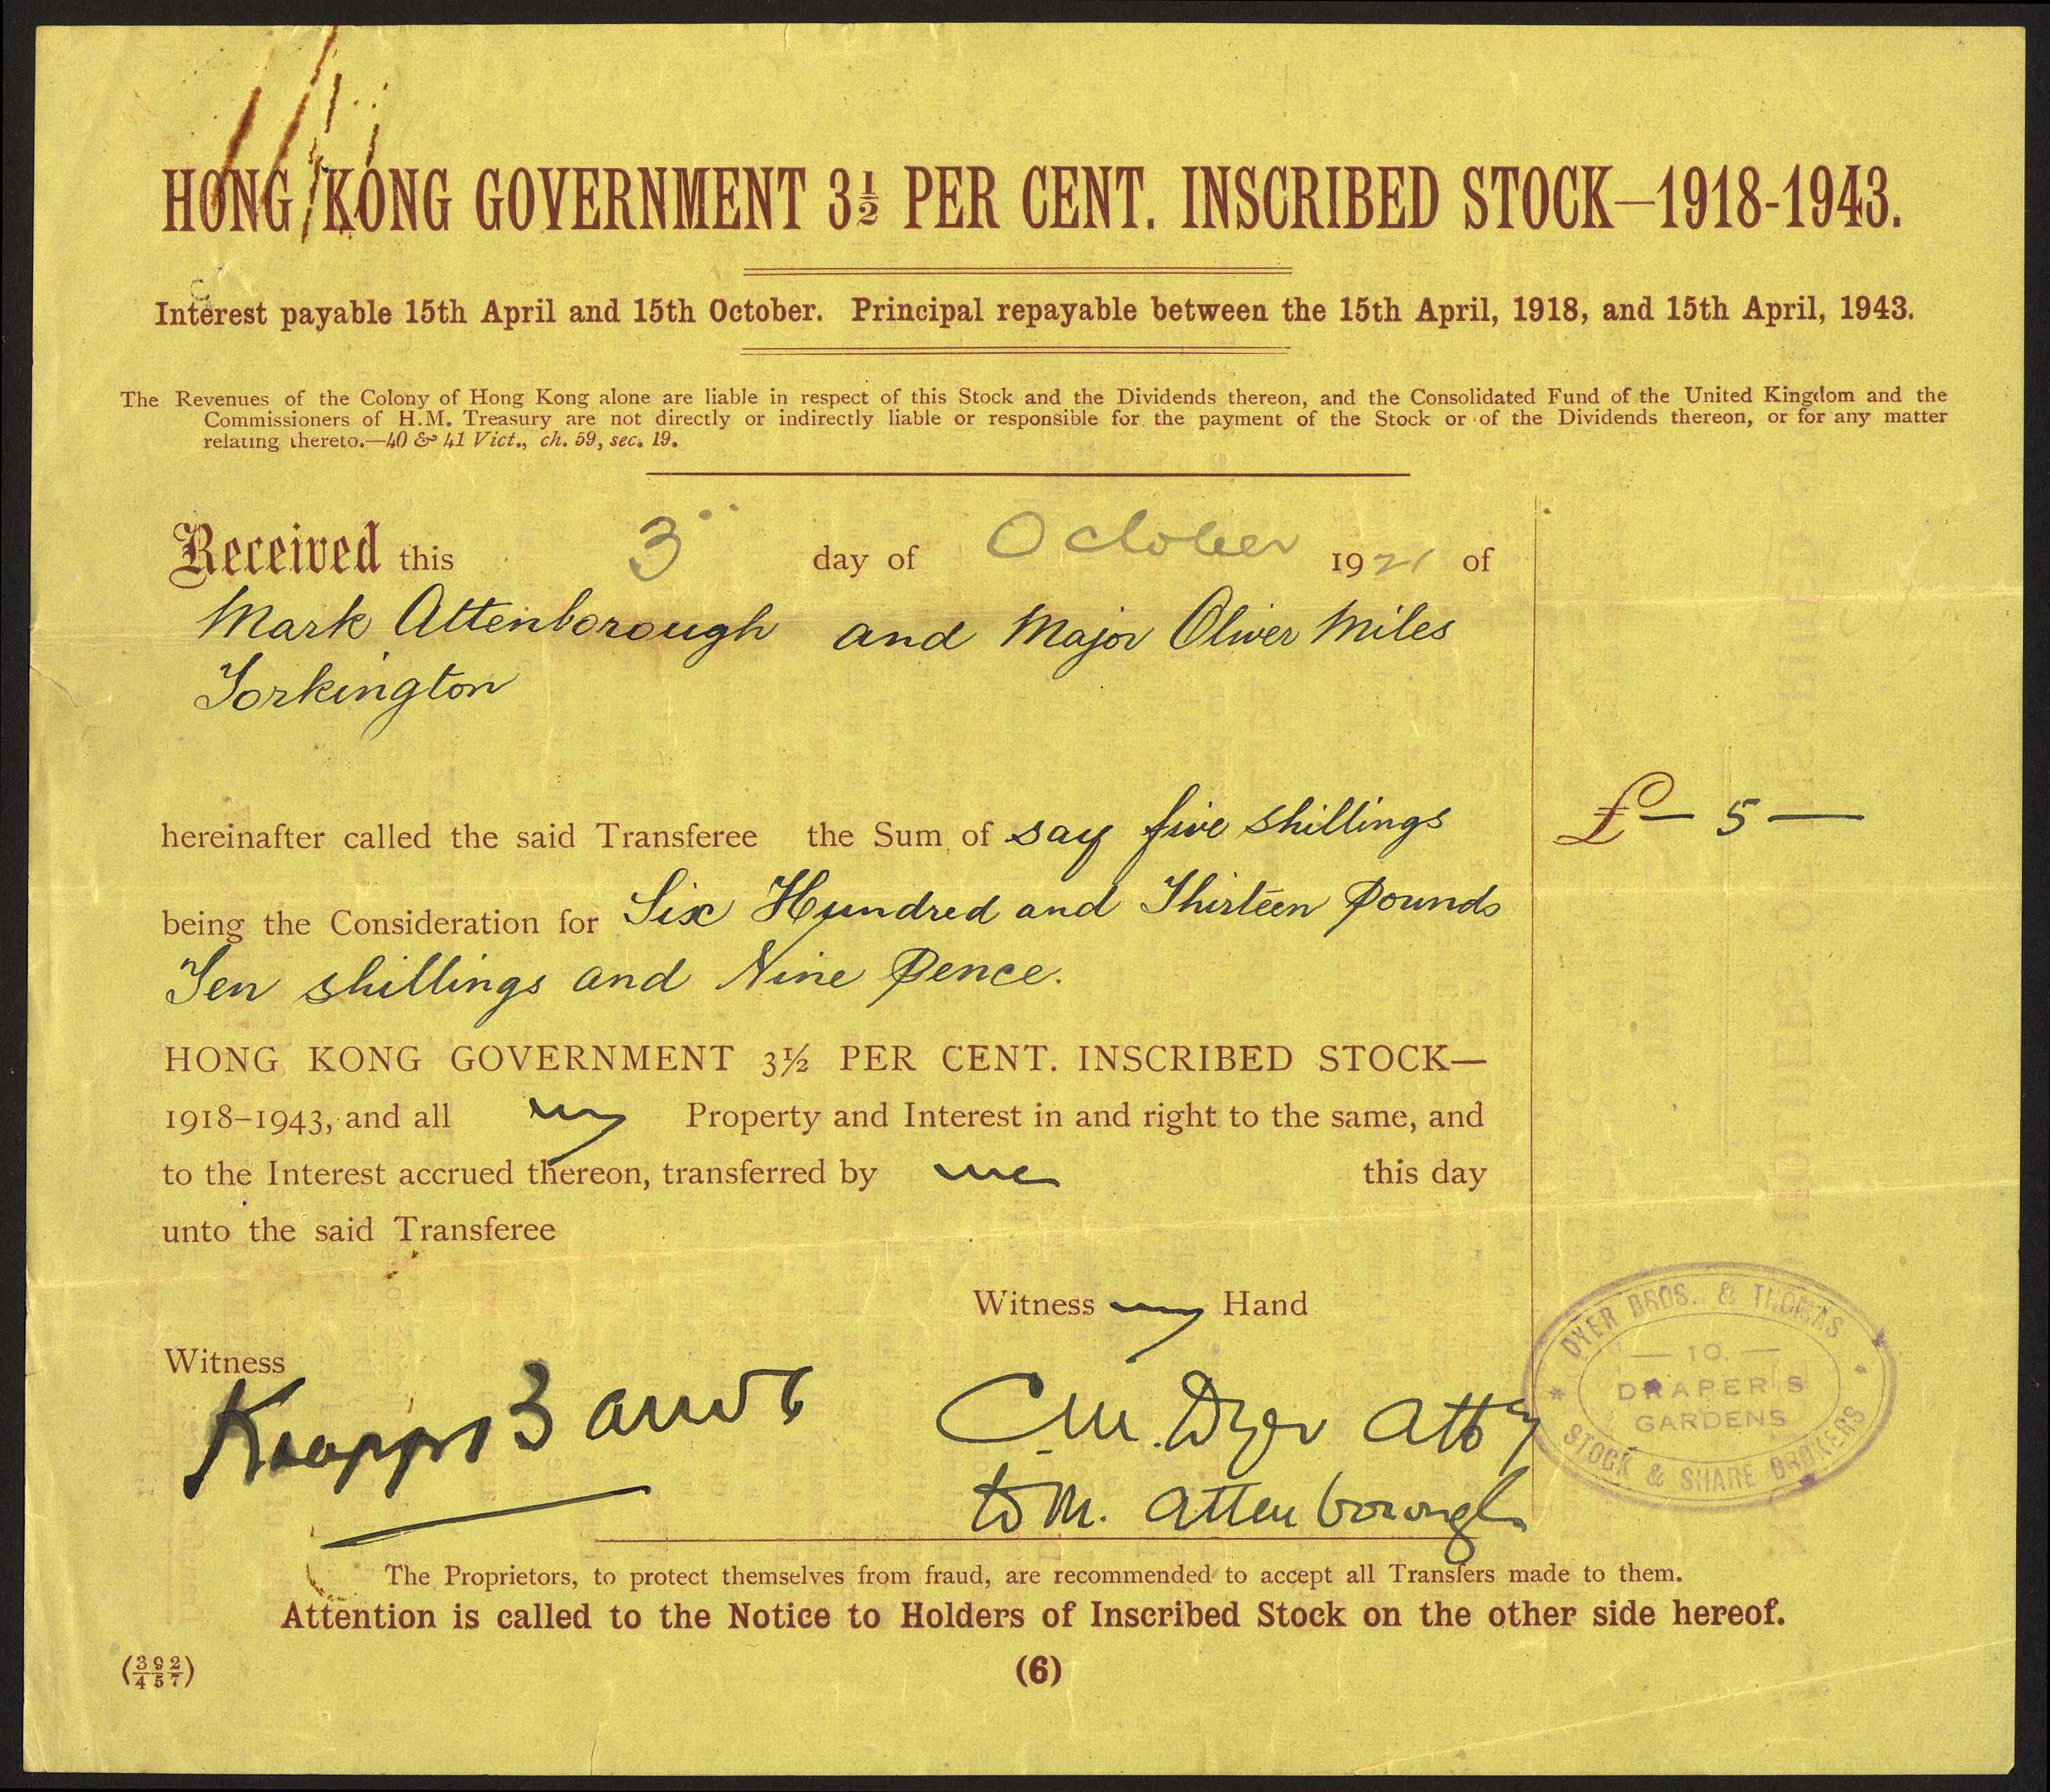 HONG KONG GOVERNMENT 3½ PER CENT. INSCRIBED STOCK—1918-1943.
Interest payable 15th April and 15th October. Principal repayable between the 15th April, 1918, and 15th April, 1943.
The Revenues of the Colony of Hong Kong alone are liable in respect of this Stock and the Dividends thereon, and the Consolidated Fund of the United Kingdom and the
Commissioners of H.M. Treasury are not directly or indirectly liable or responsible for the payment of the Stock or of the Dividends thereon, or for any matter
relating thereto.—40 & 41 Vict., ch. 59, sec. 19.
Received this 3 day of October 1921 of
Mark Attenborough and Major Oliver Miles
Torkington
hereinafter called the said Transferee the Sum of say five shillings £— 5 —
being the Consideration for Six Hundred and Thirteen Pounds
Ten shillings and Nine Pence.
HONG KONG GOVERNMENT 3½ PER CENT. INSCRIBED STOCK—
1918–1943, and all my Property and Interest in and right to the same, and
to the Interest accrued thereon, transferred by me this day
unto the said Transferee
Witness my Hand
Witness
C.M. Dyer Atty
to M. Attenborough
DYER BROS. & THOMAS
10,
DRAPERS
GARDENS
STOCK & SHARE BROKERS
The Proprietors, to protect themselves from fraud, are recommended to accept all Transfers made to them.
Attention is called to the Notice to Holders of Inscribed Stock on the other side hereof.
(392/457)
(6)